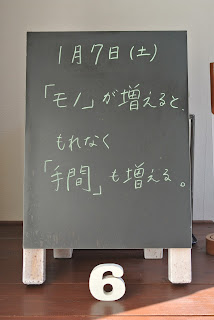 1月7日(土)
「モノ」が増えると、
もれなく
「手間」も増える。
6